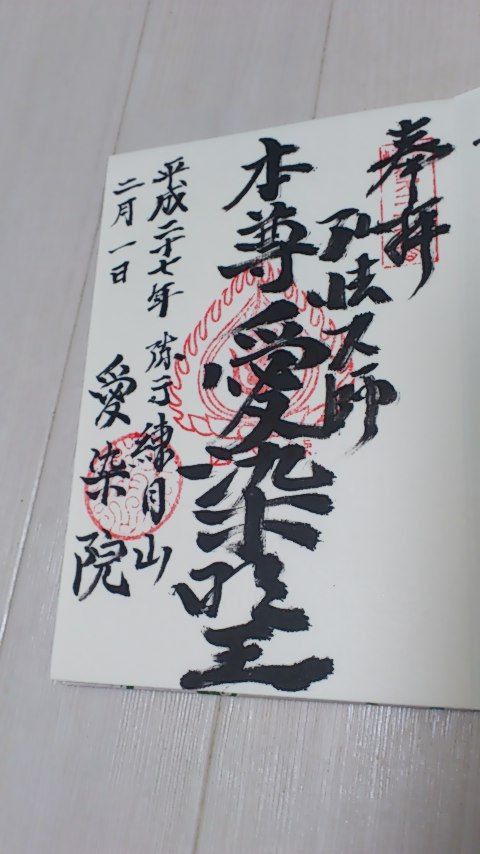 奉拝
弘法大師
本尊愛染明王
平成二十七年
二月一日
練月山
愛染院